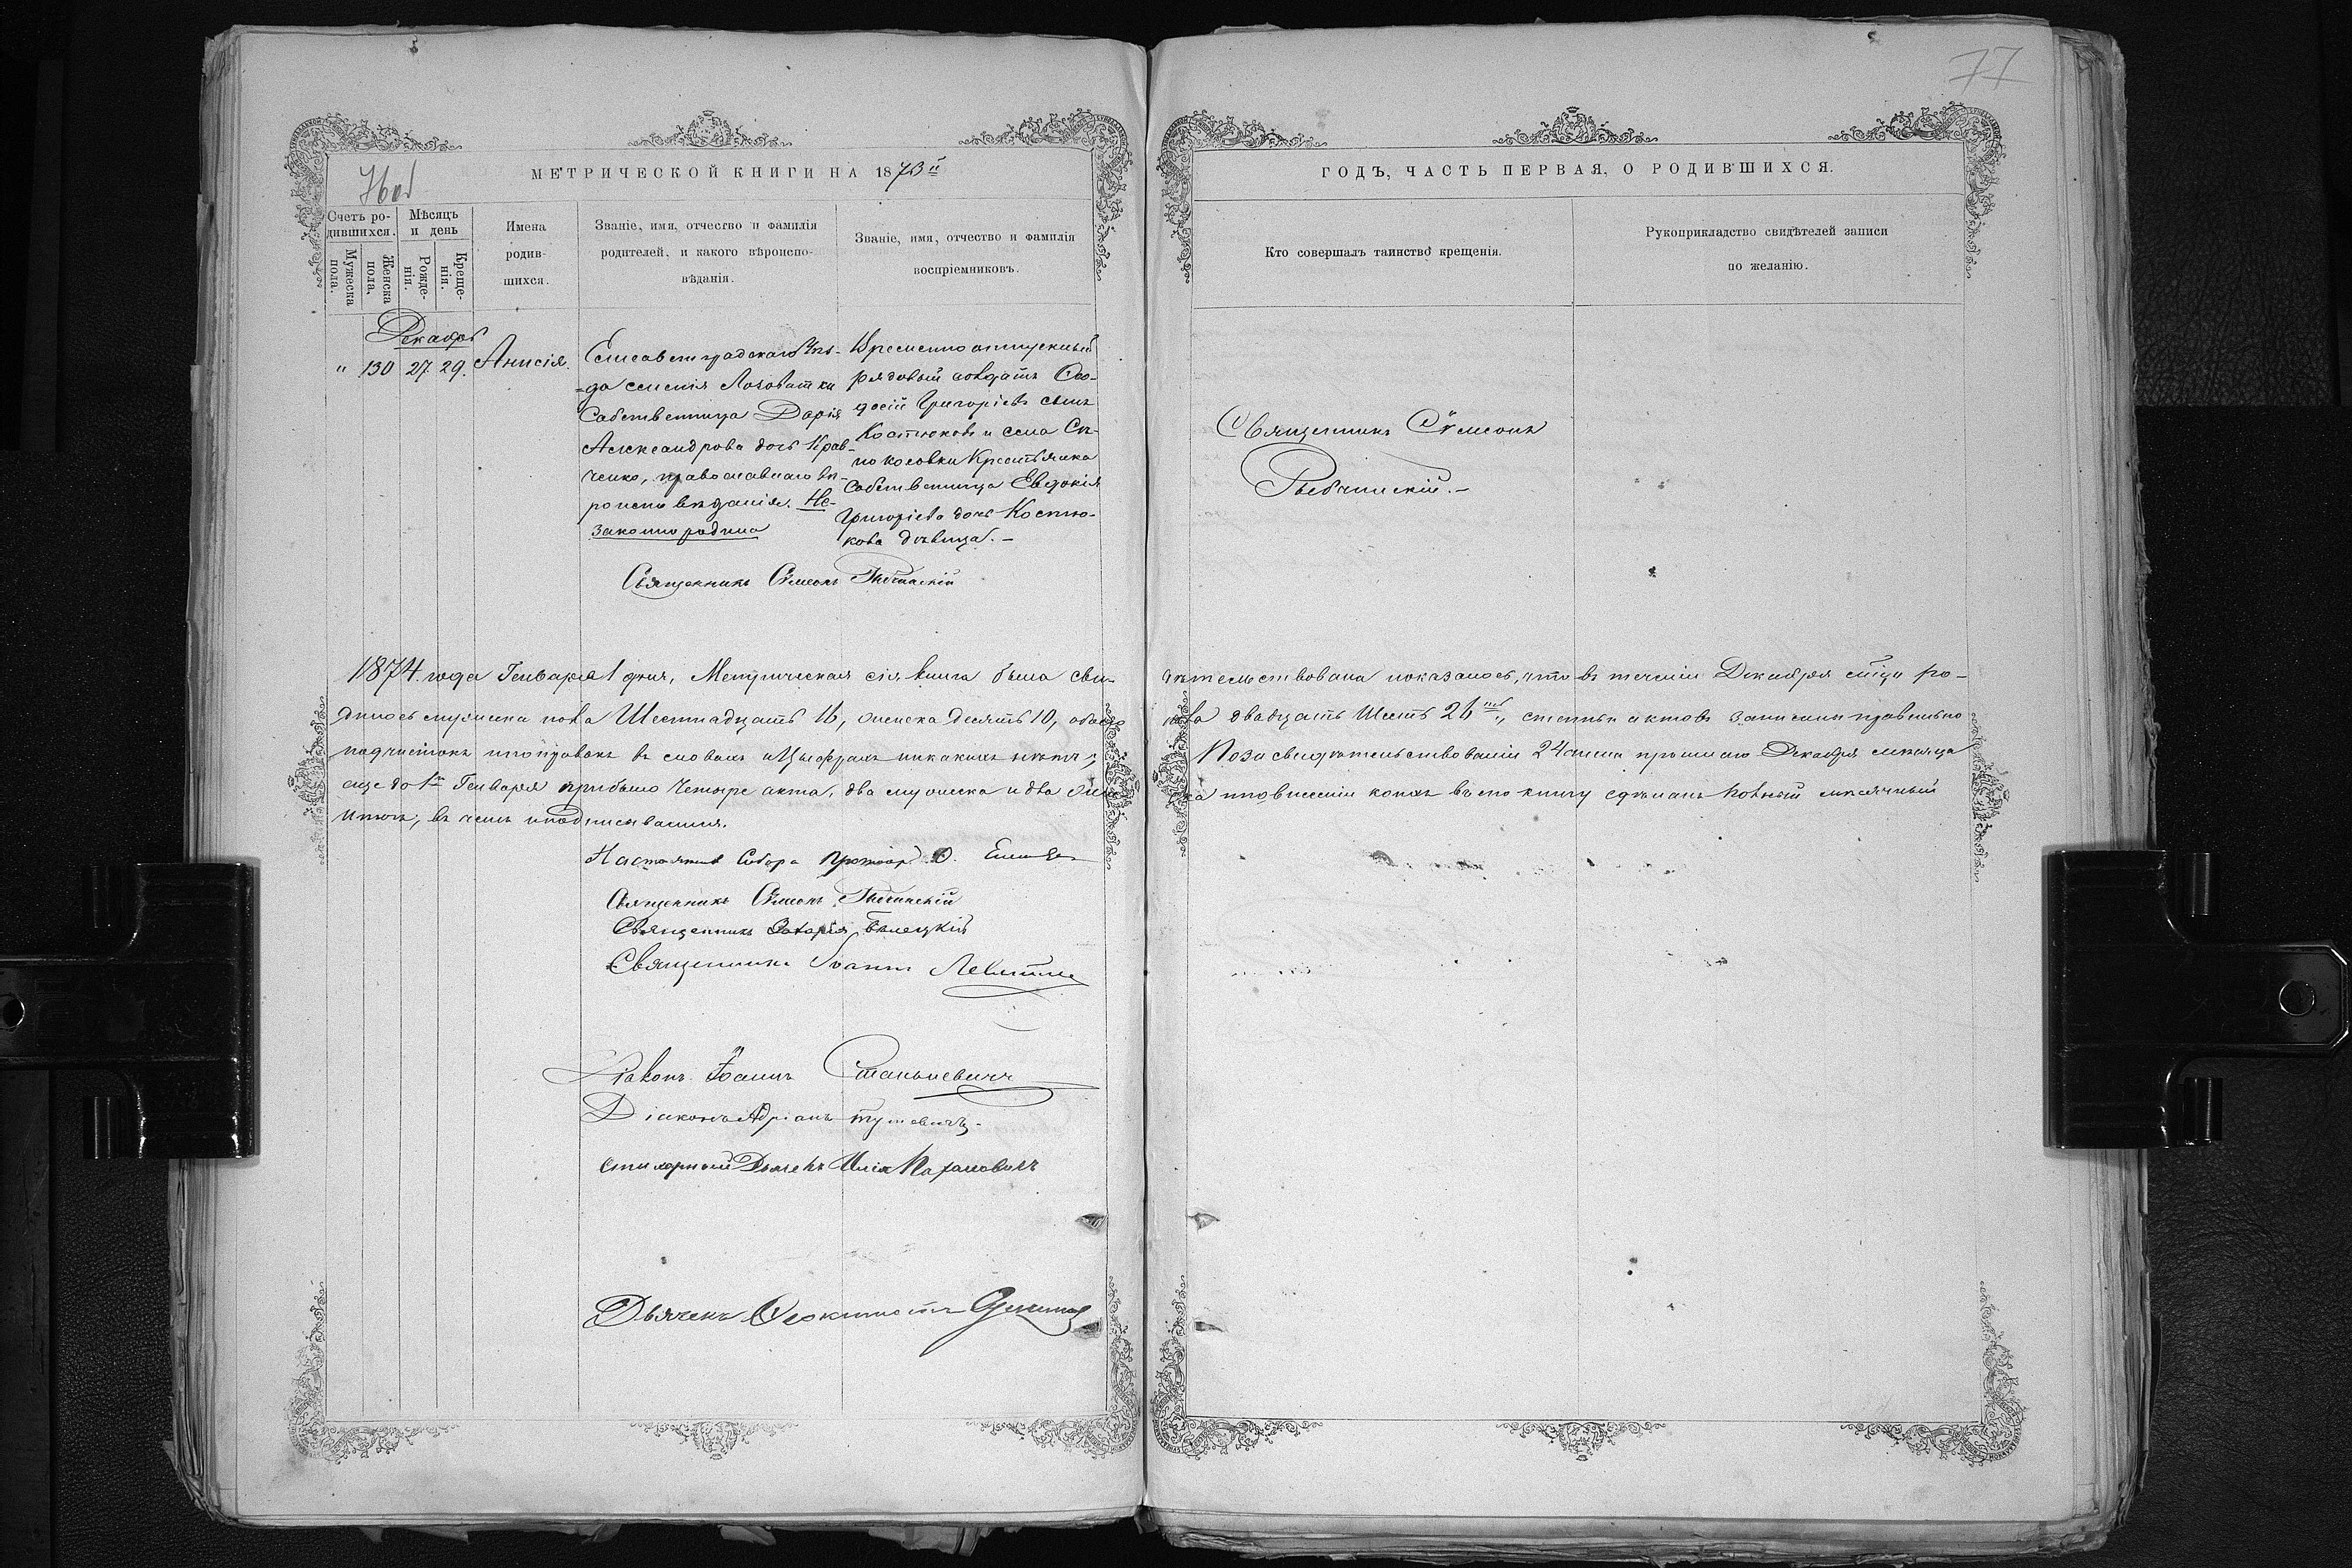 77
76 об
МЕТРИЧЕСКОЙ КНИГИ НА 1873й
ГОДЪ, ЧАСТЬ ПЕРВАЯ, О РОДИВШИХСЯ.
Счетъ ро-
дившихся.
Мужеска
пола.
Женска
пола.
Мѣсяцъ
и день
Рожде-
нія.
Креще-
нія.
Имена
родив-
шихся.
Званіе, имя, отчество и фамилія
родителей, и какого вѣроиспо-
вѣданія.
Званіе, имя, отчество и фамилія
воспріемниковъ.
Кто совершалъ таинство крещенія.
Рукоприкладство свидѣтелей записи
по желанію.
Декабрь
" 130 27. 29. Анисія.
Елисаветградскаго Уѣз-
=да селенія Лозоватки
Собственница Дарія
Александрова дочь Крав-
ченко, православнаго вѣ-
роисповѣданія. Не-
законнорадила
Временно отпускный
рядовый солдатъ Ѳео-
досій Григорьевъ сынъ
Костюковъ и села Со-
коловки Крестьянка
Собственница Евдокія
Григоріева дочь Костю-
кова дѣвица. –
Священникъ Сѵмеонъ
Рыбчинскій. –
Священникъ Сѵмеонъ Рыбчинскій
1874. года Генваря 1 дня, Метрическая сія книга была сви-
дѣтельствована показалось, что въ теченіи Декабря мѣца ро-
дилось мужеска пола Шестнадцать 16, женска десять 10, обоего
пола двадцать Шесть 26ть, статьи актовъ записаны правильно
подчистокъ и поправокъ въ словахъ и Цыфрахъ никакихъ нѣтъ;
По засвидѣтельствованіи 24 числа прошлаго Декабря мѣсяца
еще до 1го Генваря прибыло Четыре акта, два мужеска и два жен
ска по внесеніи коихъ въ сію книгу сдѣланъ полный мѣсячный
Итогъ, въ чемъ и подписываемся.
Настоятель Собора Протоіер.
Священникъ Сѵмеонъ Рыбчинскій
Священникъ Захарія Бѣлецкій
Священникъ Іоаннъ Левитскі
Діаконъ Іоаннъ Станкевичъ
Діаконъ Адріанъ
Стихарный Дьячекъ Илія
Дьячекъ Ѳеоктистъ